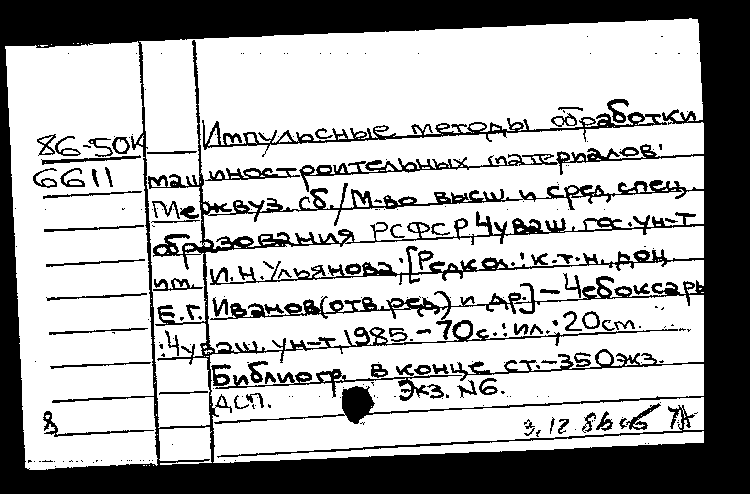 86-50К
6611
Импульсные методы обработки
машиностроительных материалов:
Межвуз. сб./М-во высш. и сред. спец.
образования РСФСР, Чуваш. гос. ун-т
им. И.Н.Ульянова; [Редкол.: к.т.н., доц.
Е.Г. Иванов (отв. ред) и др.]-Чебоксары
:Чуваш. ун-т, 1985.-70с.: ил.; 20 см.
Библиогр. в конце ст.-350экз.
ДСП. Экз. N6.
8
3.12.86